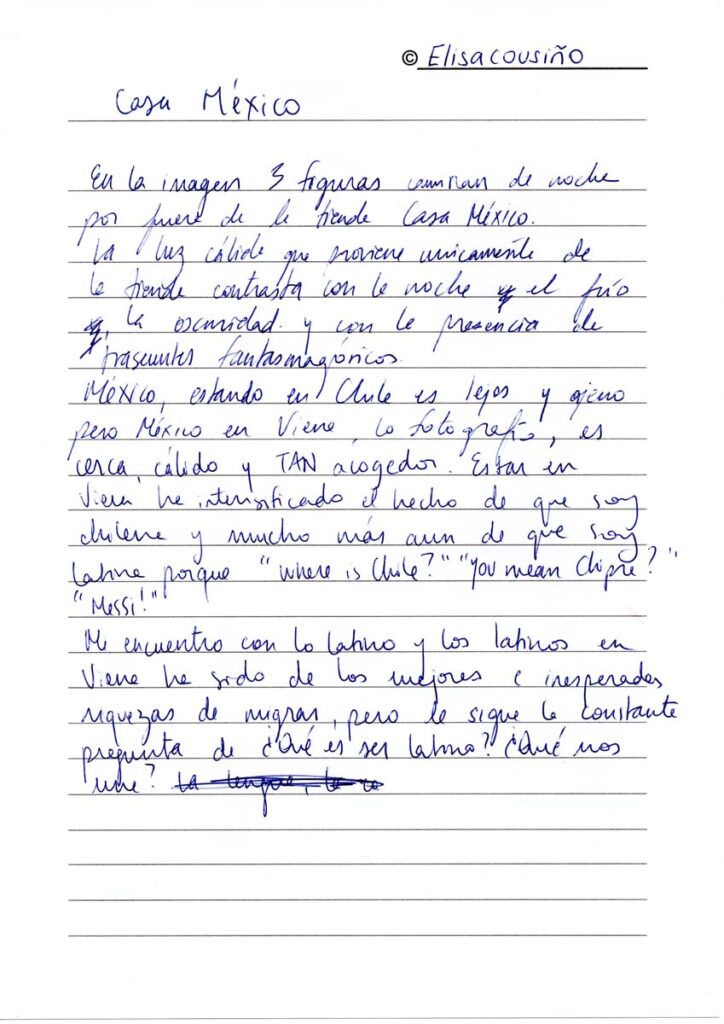 © Elisa cousiño
Casa México
En la imagen 3 figuras caminan de noche
por fuera de la tienda Casa México.
La luz cálida que proviene unicamente de
la tienda contrasta con la noche el frío
, la oscuridad. y con la presencia de
traseuntes fantasmagóricos.
México, estando en Chile es lejos y ajeno
pero México en Viena, la fotografía, es
cerca, cálido y TAN acogedor. Estar en
Viena ha intensificado el hecho de que soy
chilena y mucho más aun de que soy
latina porque "where is Chile?" "You mean Chipre?"
"Messi!"
Mi encuentro con lo latino y los latinos en
Viena ha sido de las mejores e inesperadas
riquezas de migrar, pero le sigue la constante
pregunta de ¿Qué es ser latino? ¿Qué nos
une? La lengua, la